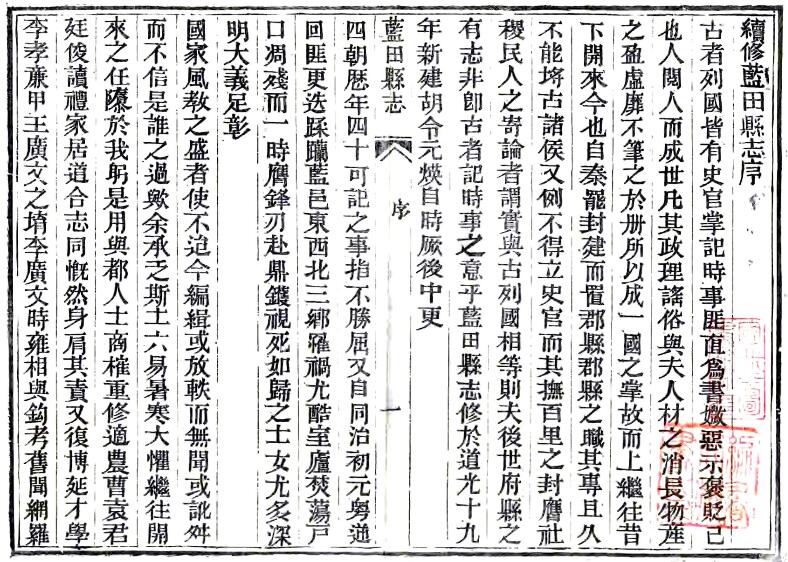 續修藍田縣志序
古者列國皆有史官掌記時事匪直爲書媺惡示褒貶己
也人閱人而成世凡其政理謠俗與夫人材之消長物產
之盈虛靡不筆之於册所以成一國之掌故而上繼往昔
下開來今也自秦罷封建而置郡縣郡縣之職其專且久
不能埒古諸侯又例不得立史官而其撫百里之封膺社
稷民人之寄論者謂實與古列國相等則夫後世府縣之
有志非卽古者記時事之意乎藍田縣志修於道光十九
年新建胡令元煐自時厥後中更
藍田縣志 序 一
四朝歷年四十可記之事指不勝屈又自同治初元粤逆
回匪更迭蹂躪藍邑東西北三鄉罹禍尤酷室廬焚蕩戶
口凋殘而一時膺鋒刃赴鼎鑊視死如歸之士女尤多深
明大義足彰
國家風敎之盛者使不迨今編緝或放軼而無聞或訛舛
而不信是誰之過歟余承乏斯土六易暑寒大懼繼往開
來之任隳於我躬是用與都人士商榷重修適農曹袁君
廷俊讀禮家居道合志同慨然身肩其責又復博延才學
李孝亷甲王廣文之堉李廣文時雍相與鉤考舊聞網羅